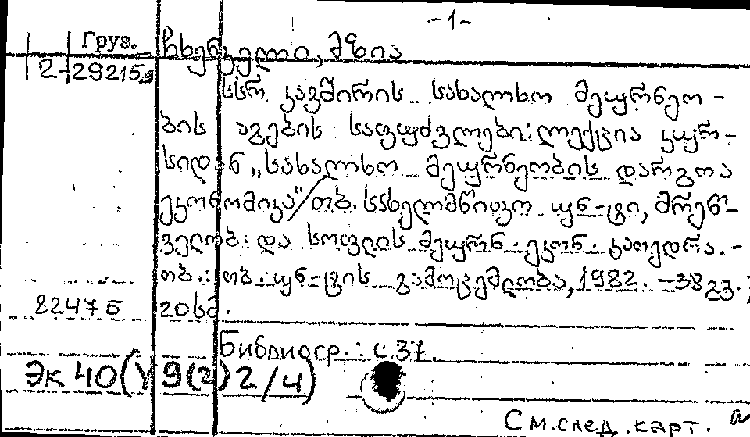 -1-
Груз. ჩხენკელი, მზია
2-29215
სსრ კავშირის სახალხო მეურნეო-
ბის აგების საფუძვლები: ლექცია კურ-
სიდან „სახალხო მეურნეობის დარგთა
ეკონომიკა“/თბ. სახელმწიფო უნ-ტი, მრეწ-
ველობ. და სოფლის მეურნ. ეკონ. კათედრა. -
თბ.: თბ. უნ-ტის გამომცემლობა, 1982. -38გვ.;
82475 20სმ.
Библиогр.: с.37.
Эк 40(У9(2)2/4)
См. след. карт.